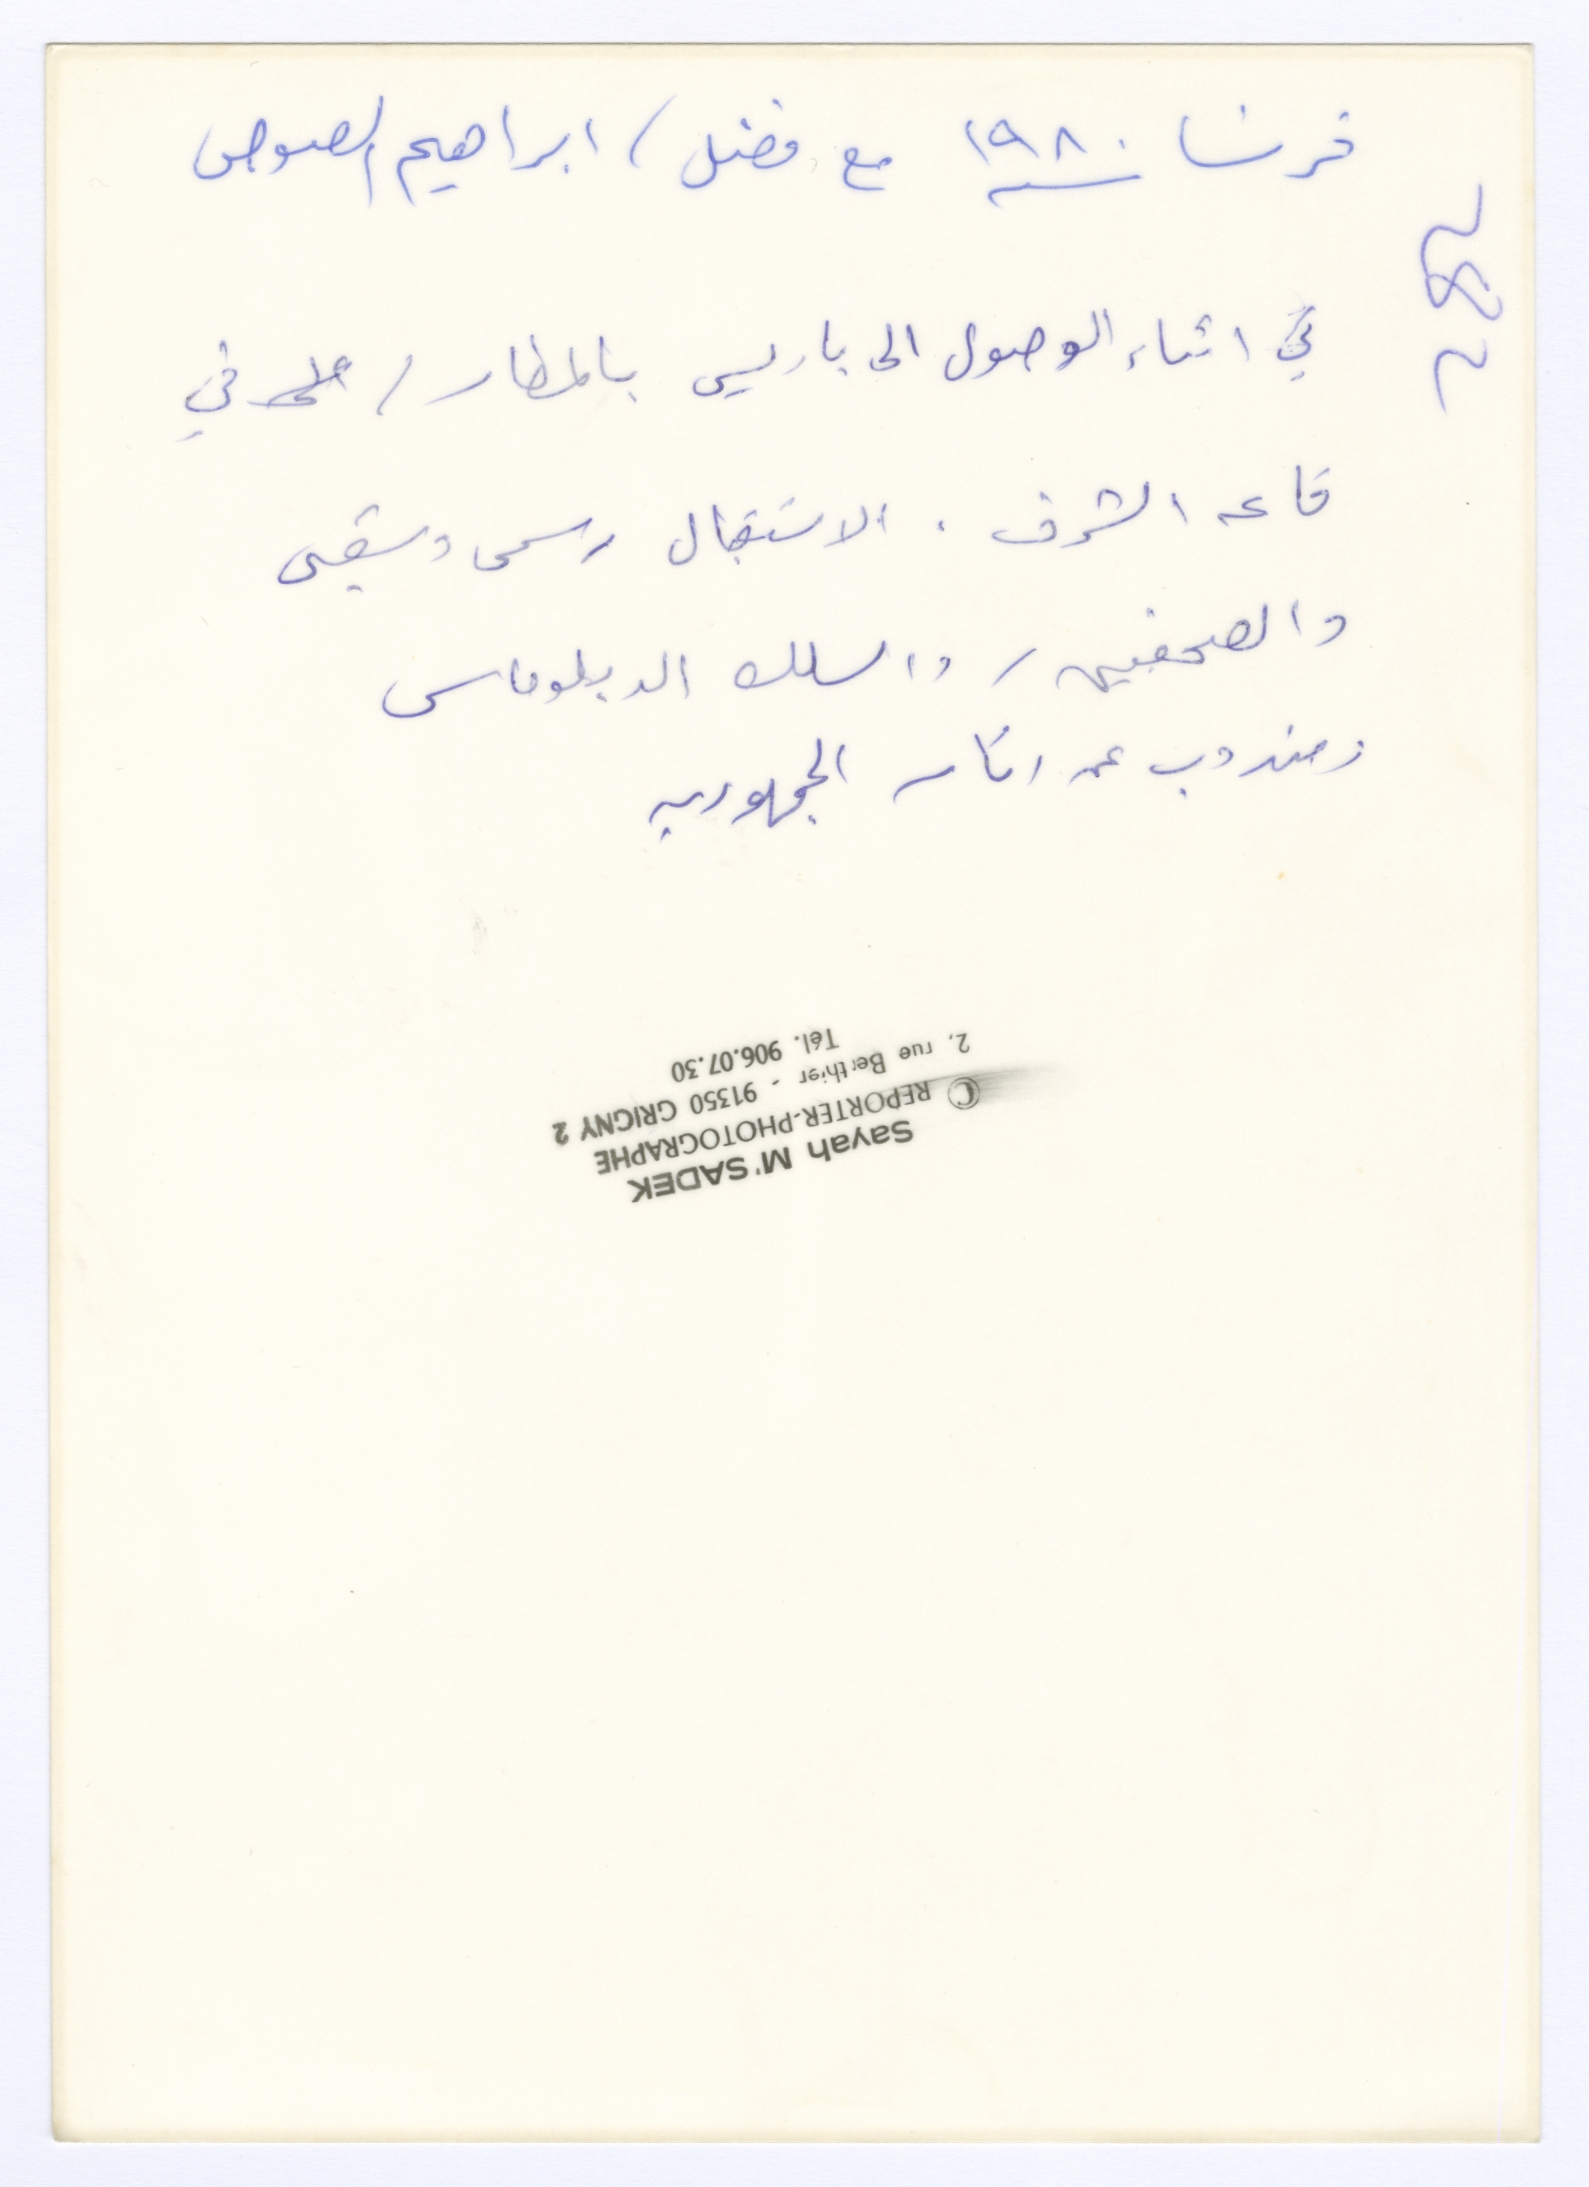 فرنسا سنة ١٩٨٠ مع فضل / ابراهيم الصوص
في اثناء الوصول الى باريس بالمطار / في
قاعه الشرف . الاستقبال رسمي وشعبى
والصحفيين / والسلك الدبلوماسى
ومندوب عن الجمهوريه
Sayah M'SADEK
© REPORTER-PHOTOGRAPHE
2, rue Berthier - 91350 GRIGNY 2
Tél. 906.07.30